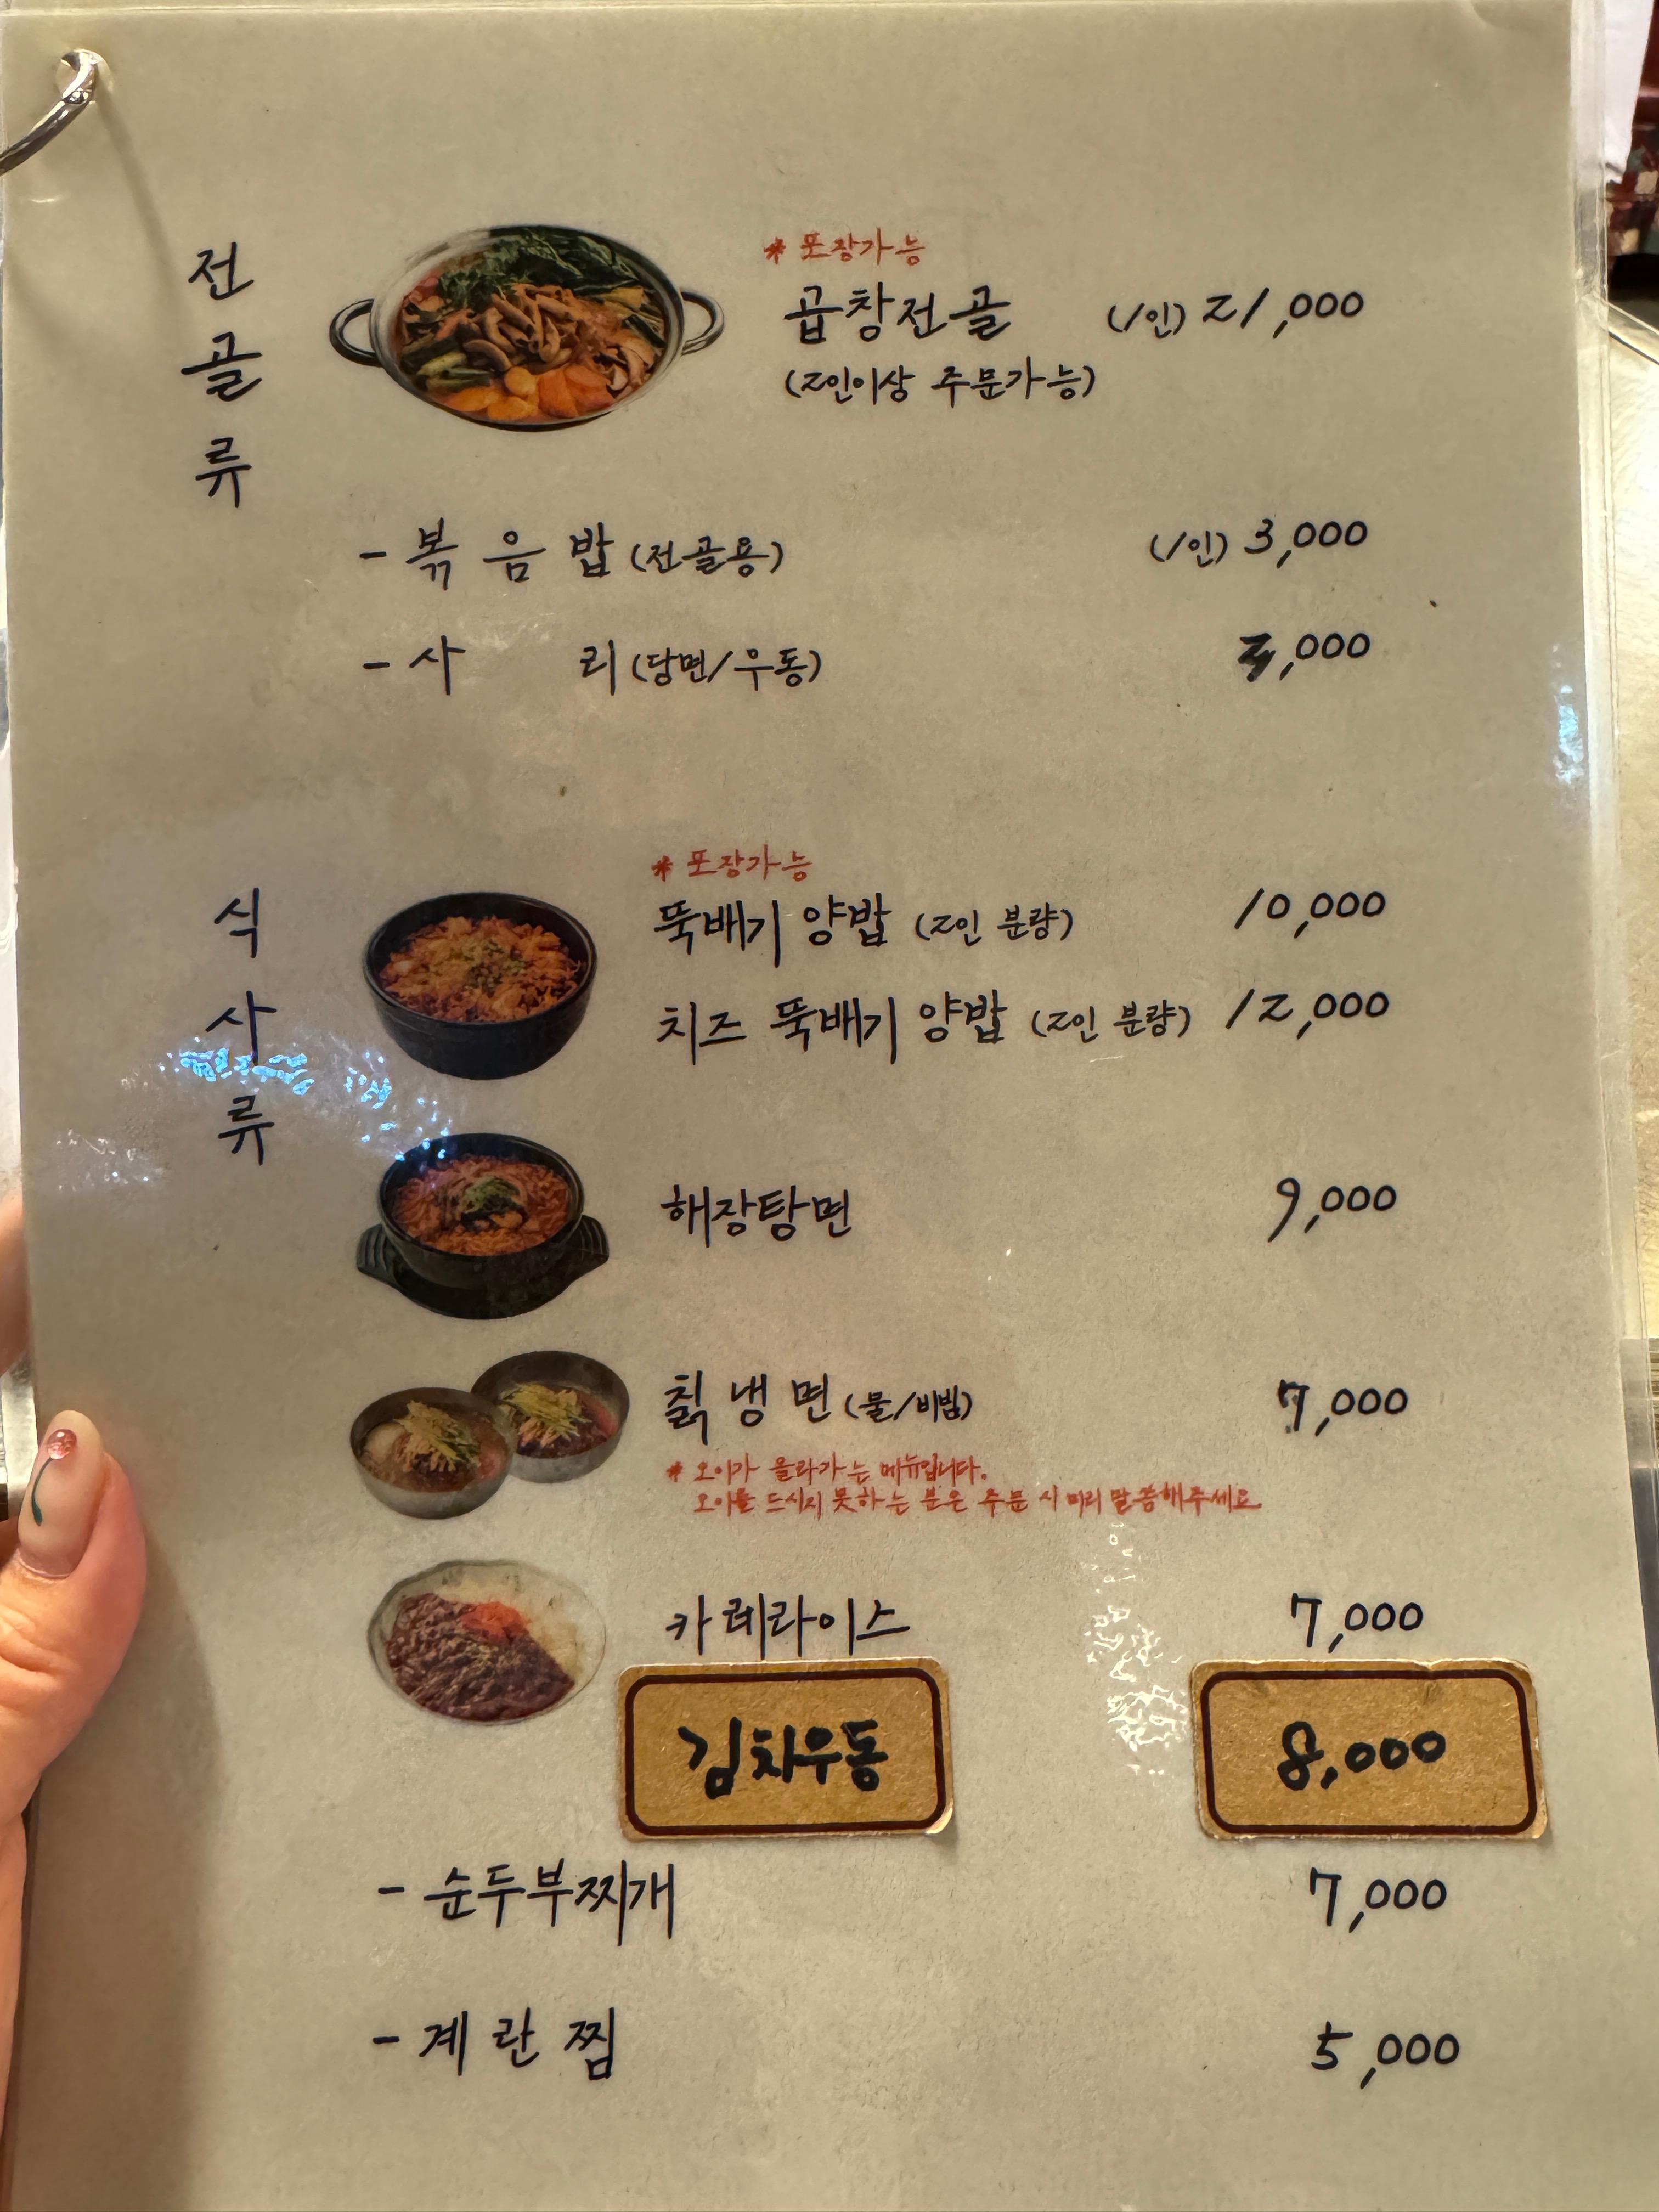 전골류
* 포장가능
곱창전골 (1인) 21,000
(2인이상 주문가능)
- 볶음밥 (전골용) (1인) 3,000
- 사리 (당면/우동) ,000
식사류
* 포장가능
뚝배기 양밥 (2인 분량) 10,000
치즈 뚝배기 양밥 (2인 분량) 12,000
해장탕면 9,000
칡냉면 (물/비빔) 7,000
* 오이가 올라가는 메뉴입니다.
오이를 드시지 못하는 분은 주문 시 미리 말씀해주세요
카레라이스 7,000
김치우동 8,000
- 순두부찌개 7,000
- 계란찜 5,000